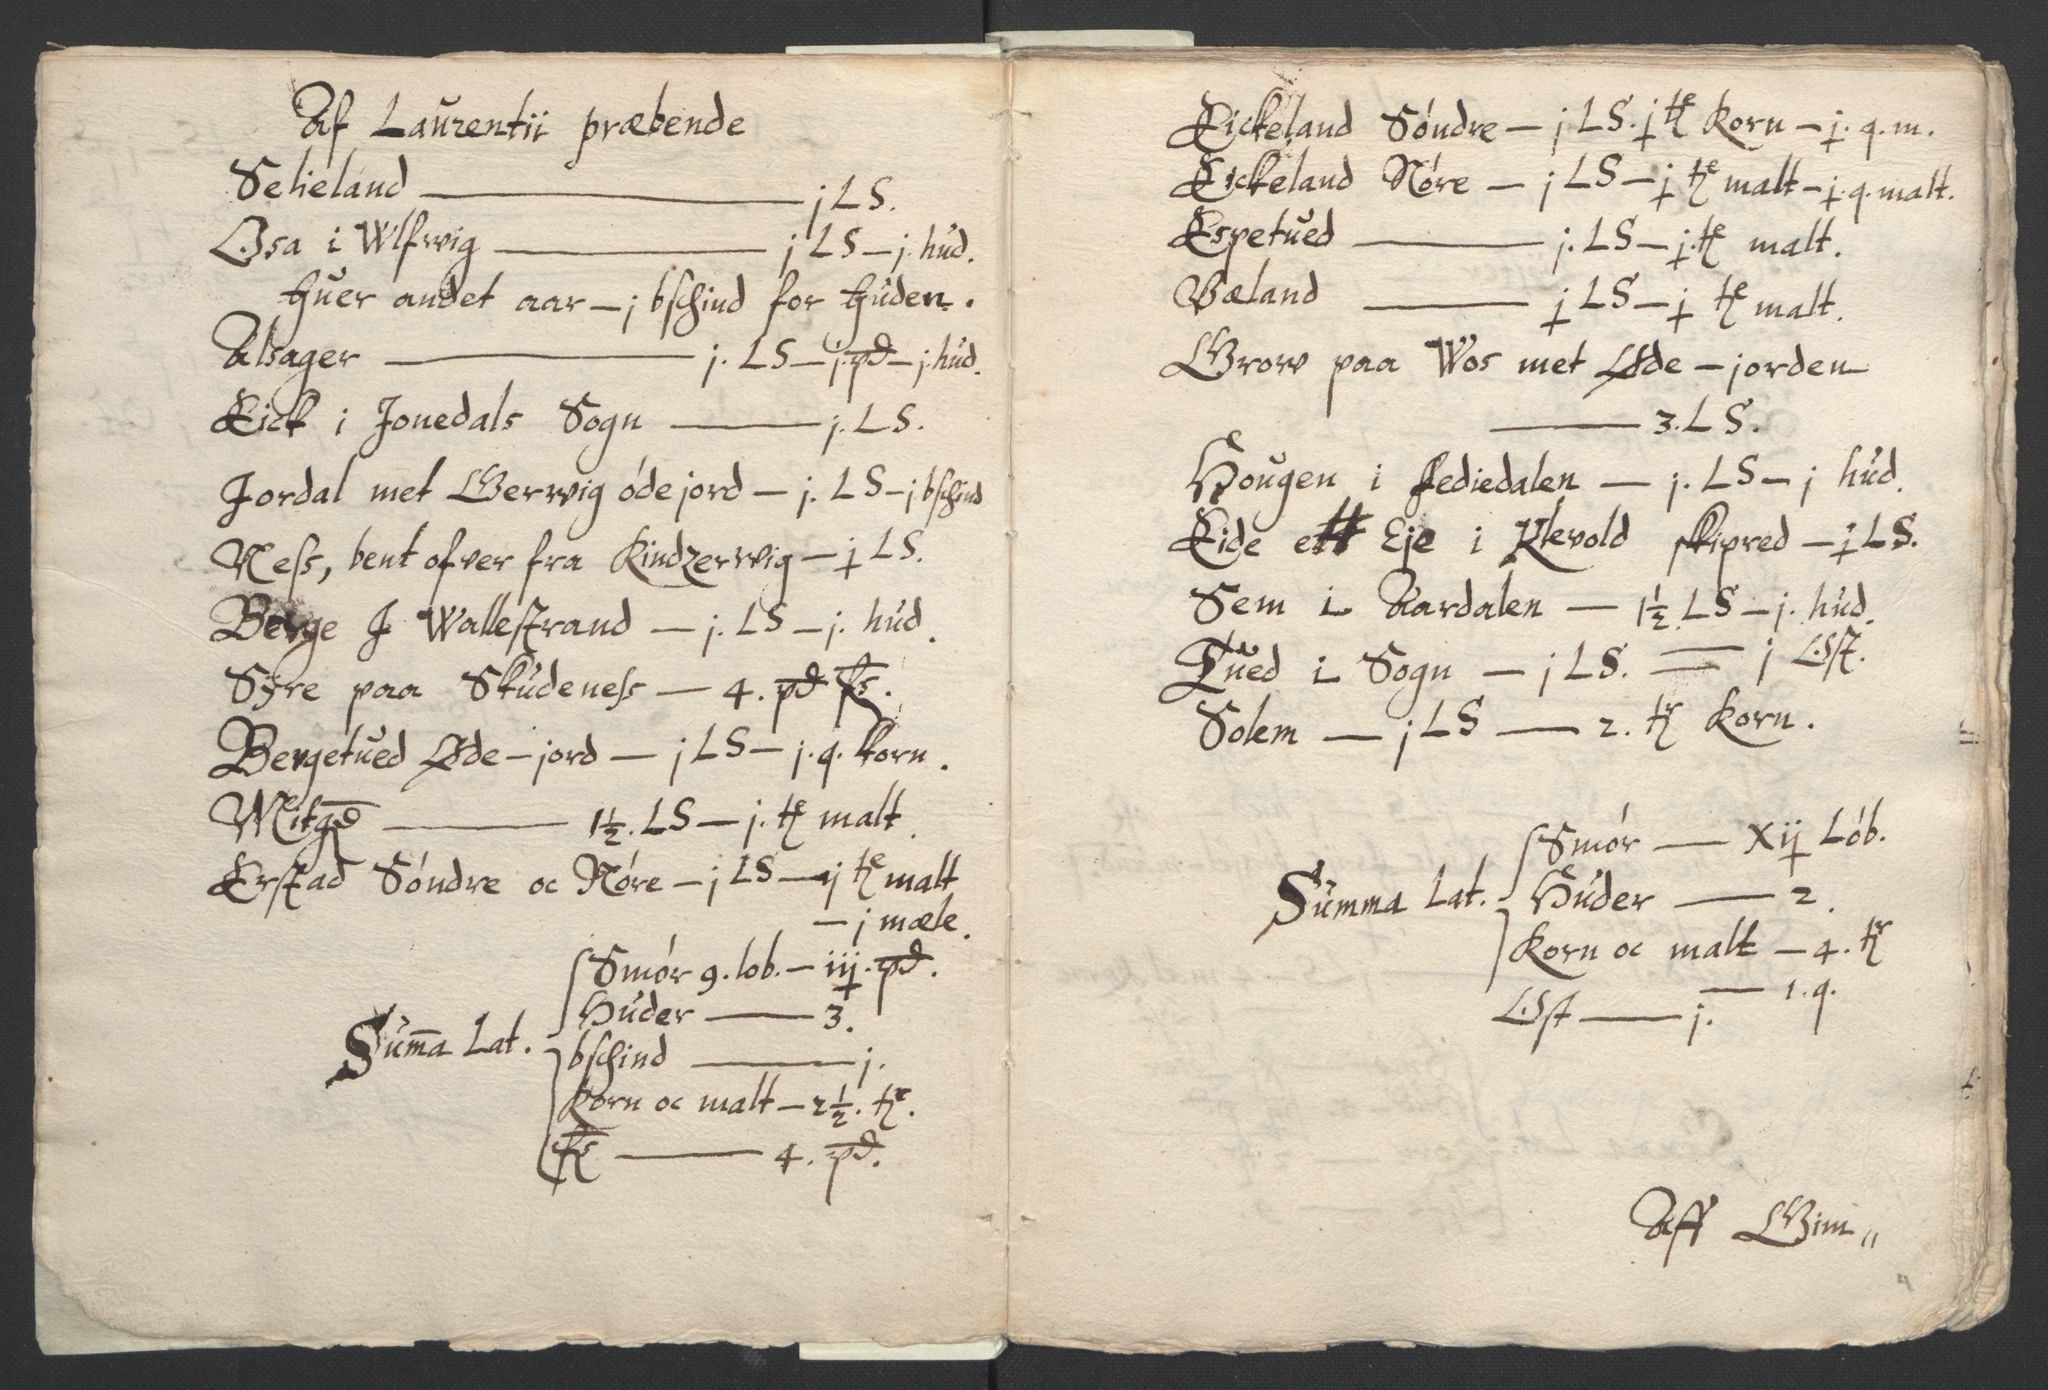 Af Laurentii præbende
Selieland — j LS.
Osa i Wlfwig — j LS — j. hud.
huer andet aar — j bschind for huden.
Alsager — j. LS — j. pd — j. hud.
Eick i Jonedals Sogn — j. LS.
Jordal met Berwig ódejord — j. LS — j bschind
Ness, bent ofver fra Kindzerwig — ɉ LS.
Berge J Wallestrand — j. LS — j. hud.
Syre paa Skudeness — 4. pd fs.
Bergetued Øde-jord — j LS — j. q. korn.
Mitgd — 1½. LS — j. tꝭ malt.
Erstad Sóndre oc Nóre — j LS — j tꝭ malt
— j mæle.
Smór 9. lob. — iiɉ. pd.
Huder — 3.
Sum̄a Lat.
bschind — j.
Korn oc malt — 2½. tꝭ.
fs — 4. pd.
Eickeland Sóndre — j LS. ɉ tꝭ Korn — ɉ. q. m.
Eickeland Nóre — j LS — ɉ tꝭ malt — ɉ. q. malt.
Espetued — j. LS — ɉ. tꝭ malt.
Bæland — ɉ LS — ɉ tꝭ malt.
Grow paa Wos met Øde-jorden
— 3. LS.
Hougen i fediedalen — j. LS — j hud.
Eide ett Eje i Klevold skipred — ɉ LS.
Sem i Aardalen — 1½ LS — j. hud.
Tued i Sogn — j LS. — j Ost.
Solem — j LS — 2. tr Korn.
Smór — Xiɉ Lób.
Summa Lat. Huder — 2.
Korn oc malt — 4. tr
— 1. q.
Ost — j.
Aff Gim„
4